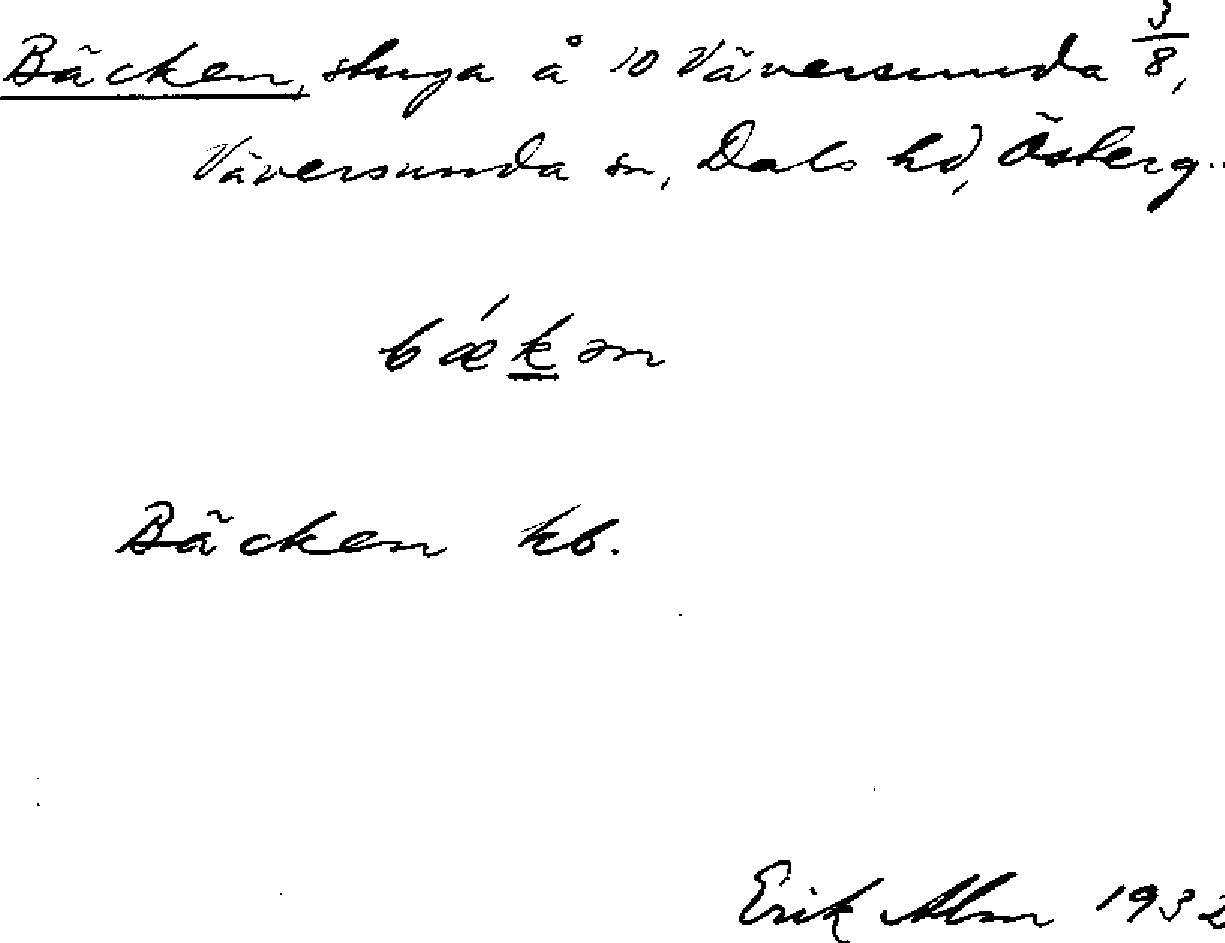 Bäcken, stuga å 10 Väversunda 3/8,
Väversunda sn, Dals hd, Österg.
bǽkən
Bäcken kb.
Erik Alm 1932